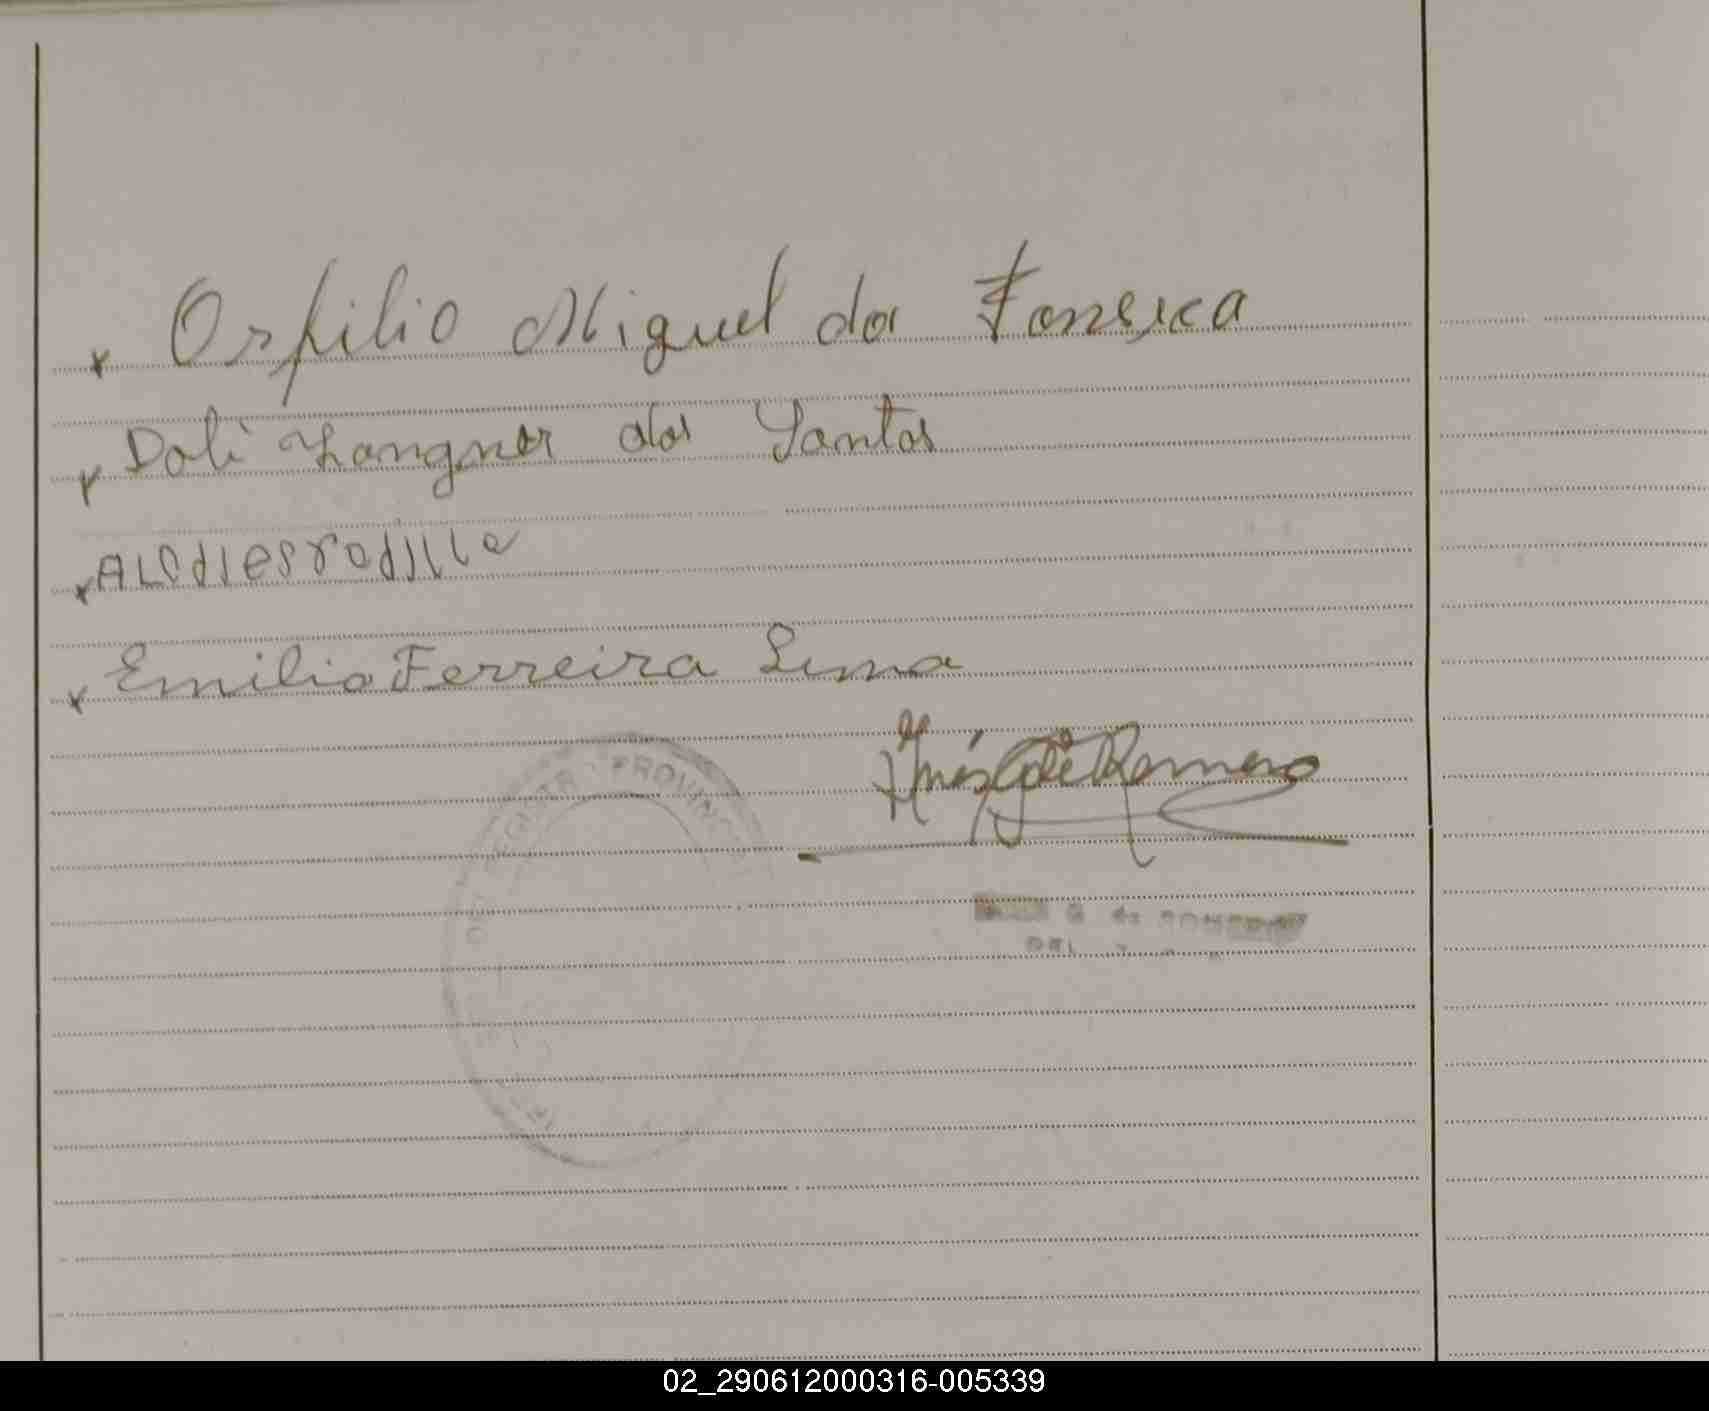 x Orfilio Miguel da Fonseca
x Dali Langner dos Santos
x Alodiesrodille
x Emilio Ferreira Lima
Inés G de Romero
REGISTR PROVINC
G de ROMERO
DEL
02_290612000316-005339